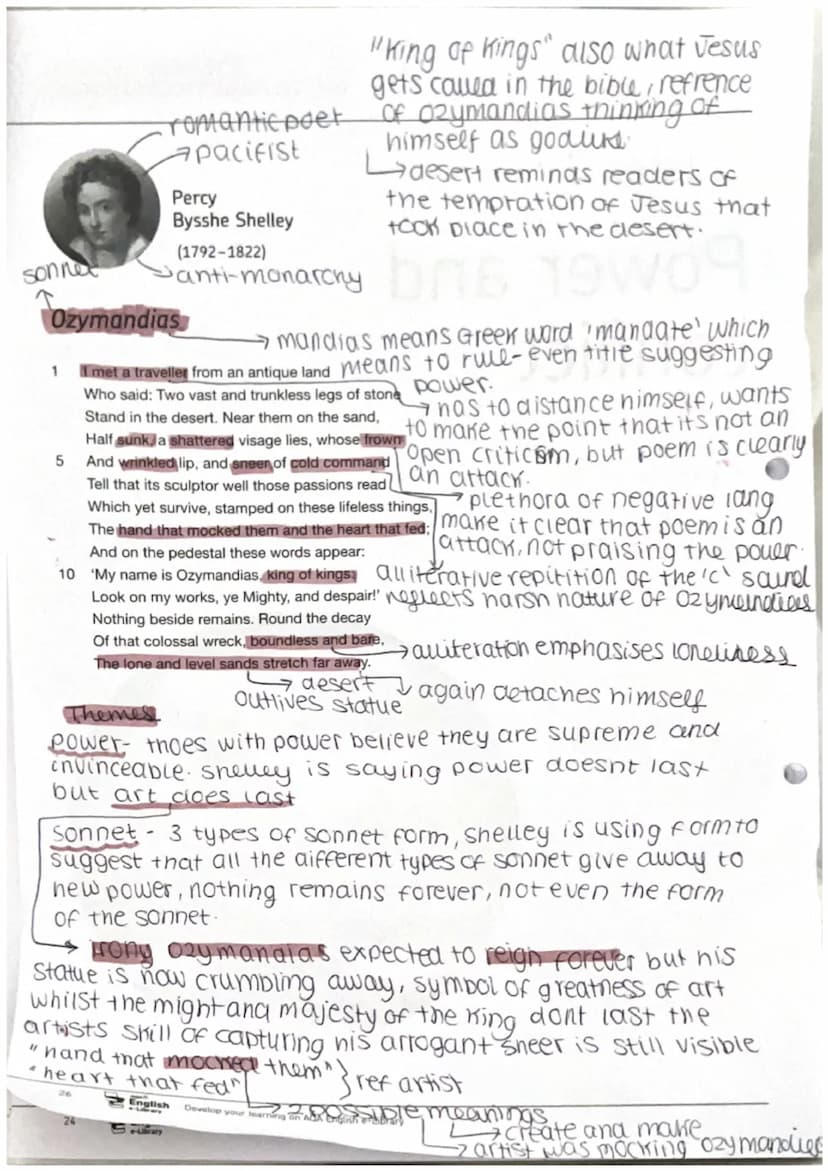 "King of Kings" also what Jesus
gets called in the bible, refrence
of ozymandias thinking of
himself as godlike.
→desert reminds readers of
the temptation of Jesus that
took place in the desert.
romantic poet
→pacifist
Percy
Bysshe Shelley
(1792–1822)
→anti-monarchy
sonnet
Ozymandias
→ mandias means Greek word 'mandate' which
means to rule- even title suggesting
power.
1 I met a traveller from an antique land
Who said: Two vast and trunkless legs of stone
Stand in the desert. Near them on the sand,
Half sunk, a shattered visage lies, whose frown
5 And wrinkled lip, and sneer of cold command
Tell that its sculptor well those passions read
Which yet survive, stamped on these lifeless things,
The hand that mocked them and the heart that fed;
And on the pedestal these words appear:
10 'My name is Ozymandias, king of kings;
Look on my works, ye Mighty, and despair!'
Nothing beside remains. Round the decay
Of that colossal wreck, boundless and bare,
The lone and level sands stretch far away.
→ has to distance himself, wants
to make the point that its not an
open criticism, but poem is clearly
an attack.
→ plethora of negative lang
make it clear that poem is an
attack, not praising the power.
alliterative repitition of the 'c' sound
neflects harsh nature of Ozymandias
→alliteration emphasises loneliness
→ desert
outlives statue
again detaches himself
Themes
power- thoes with power believe they are supreme and
invinceable. Shelley is saying power doesnt last
but art does last
sonnet - 3 types of sonnet form, Shelley is using form to
suggest that all the different types of sonnet give away to
new power, nothing remains forever, not even the form
of the sonnet.
→ Irony Ozymandias expected to reign forever but his
statue is now crumbling away, symbol of greatness of art
whilst the might and majesty of the king dont last the
artists skill of capturing his arrogant sneer is still visible
"hand that mocked them"
"heart that fed"
} ref artist
→ 2 possible meanings
→ create and make
→ artist was mocking Ozymandias
26
English
e-Library
Develop your learning on AQA English e-Library
24
e-Library